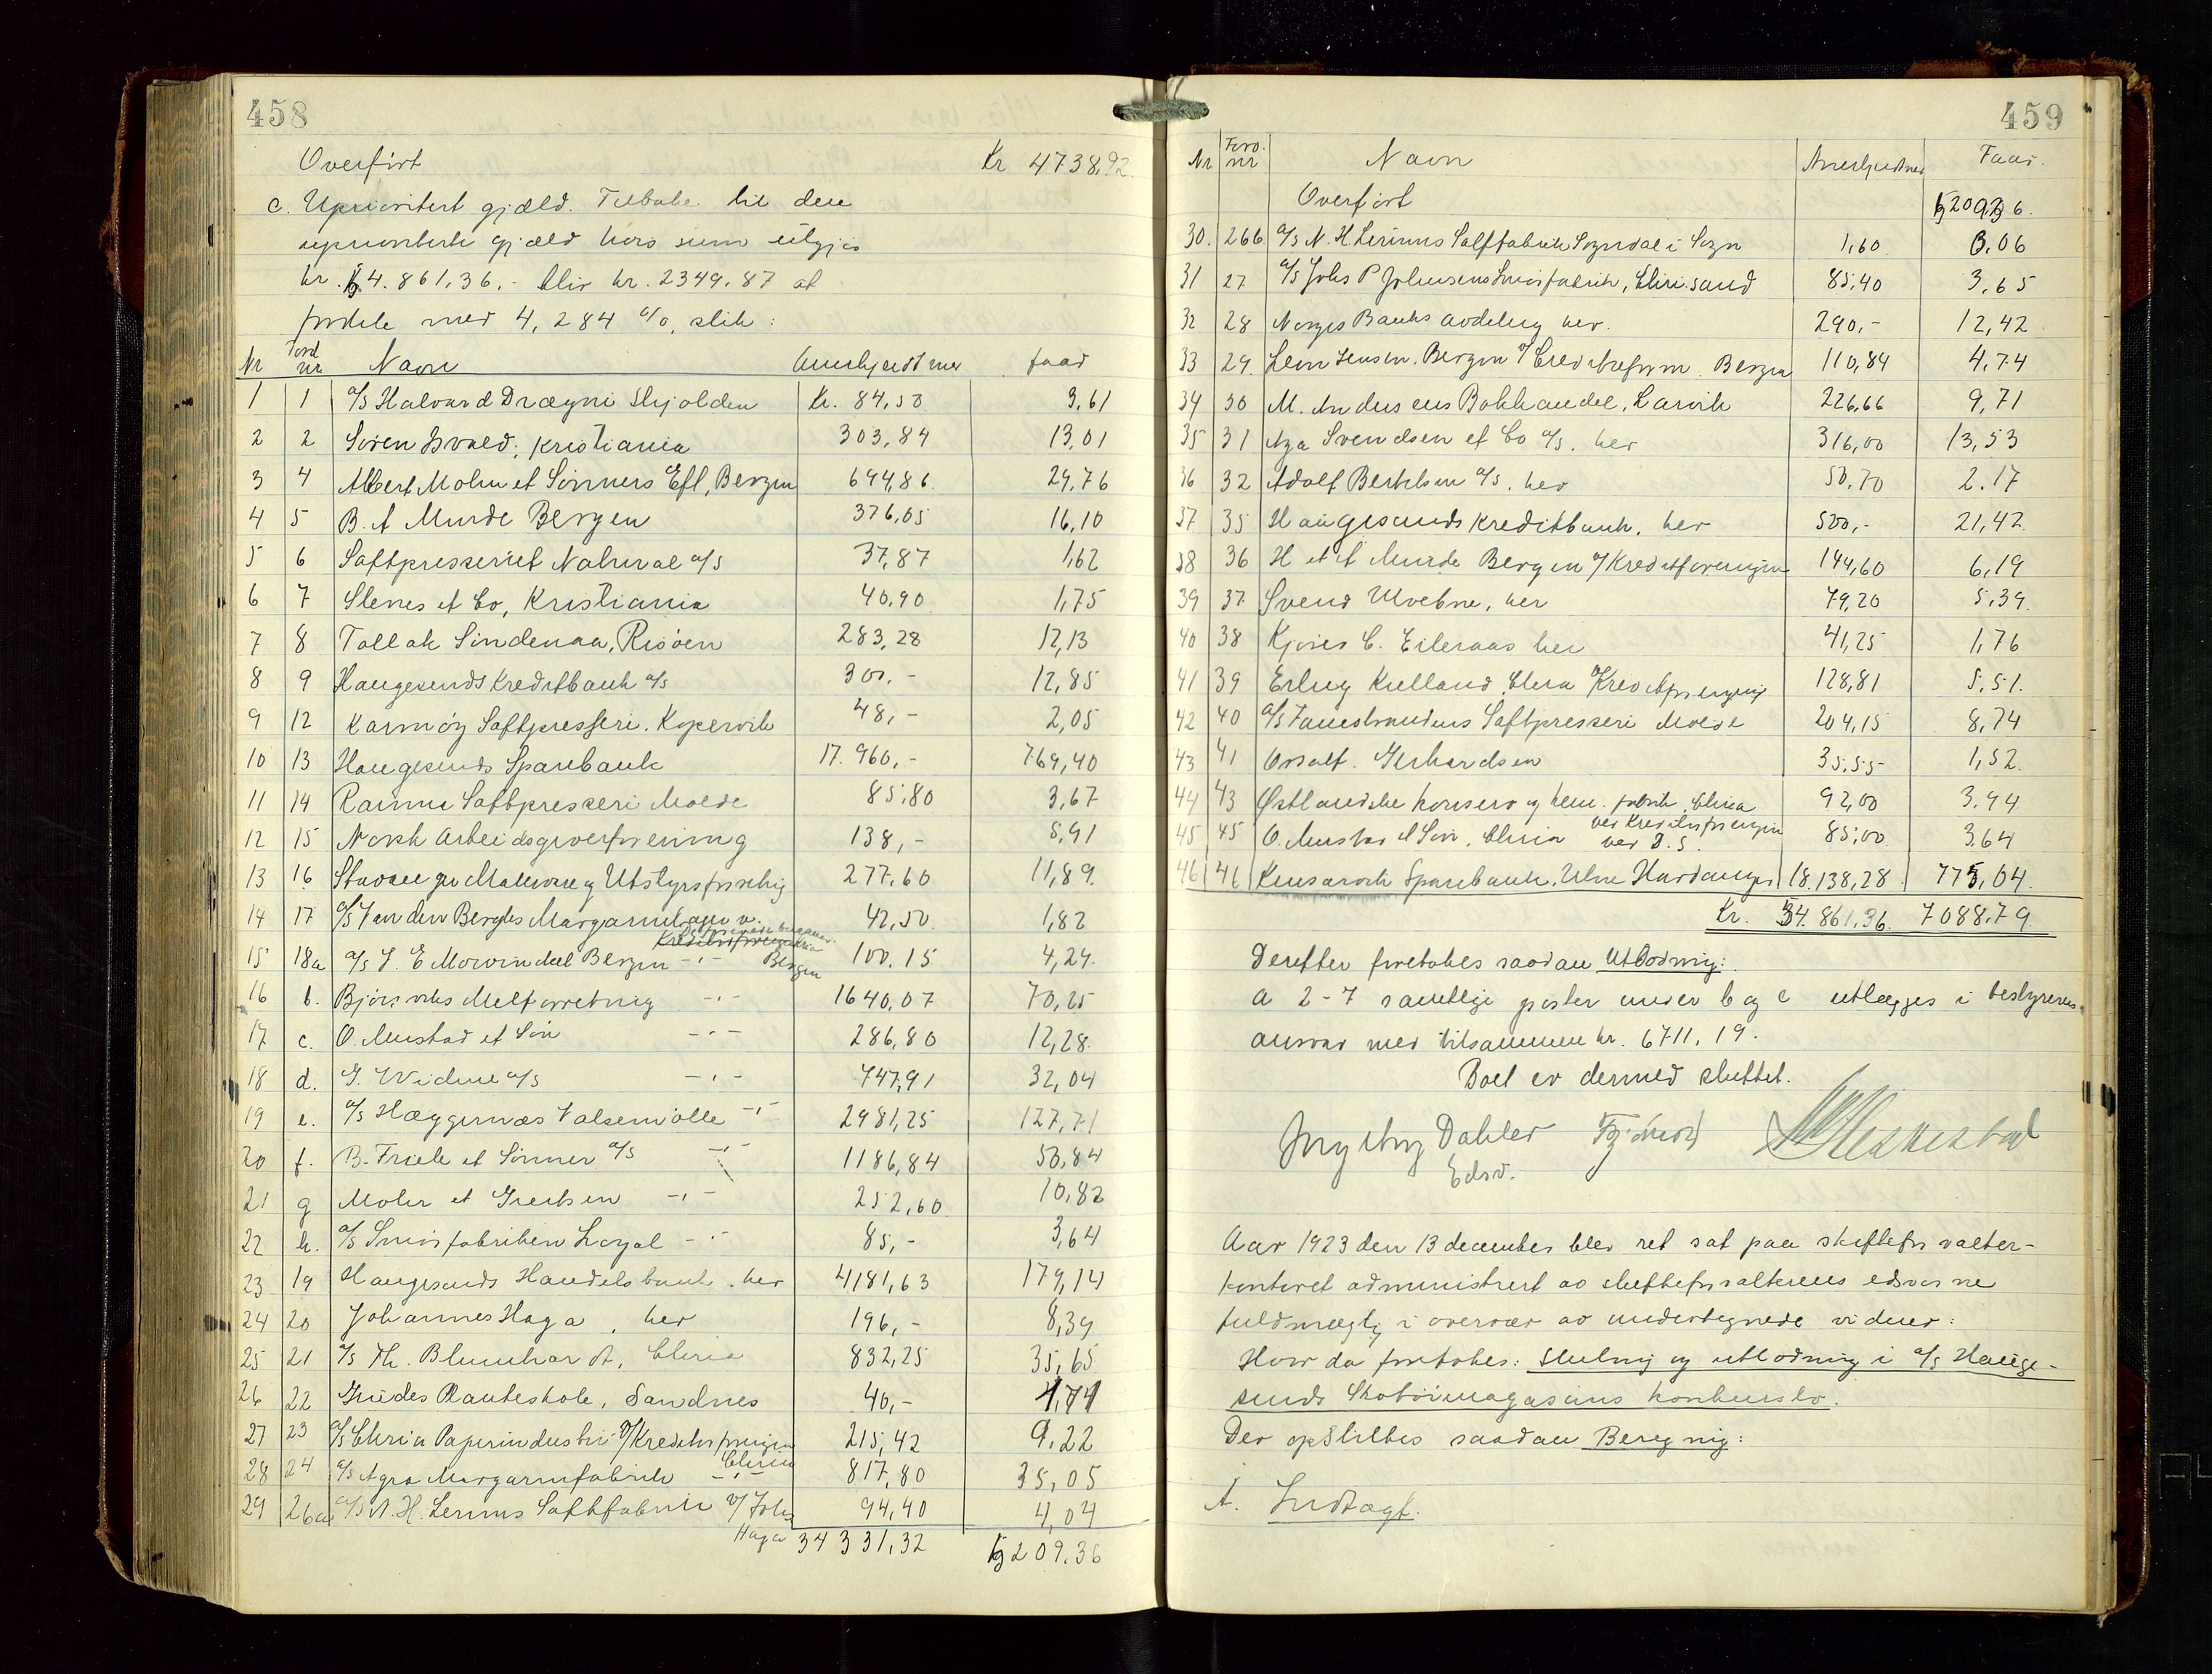 458
Overført Kr. 4738,92
c. Uprioritert gjæld. Tilbake til den
uprioriterte gjæld hvis sum utgjør
kr. 54.861,36,- blir kr. 2349,87 at
fordele med 4,284 %, slik:
Nr Ford nr Navn Anerkjendt med faar
1 1 a/s Halvard Drægni Skjolden Kr. 84,50 3,61
2 2 Søren Isvald, Kristiania 303,84 13,01
3 4 Albert Mohn et Sønners Eft, Bergen 694,86 29,76
4 5 B. A Murde Bergen 376,05 16,10
5 6 Saftpresseriet Natural a/s 37,87 1,62
6 7 Stenes et Co, Kristiania 40,90 1,75
7 8 Tollak Søndenaa, Risøen 283,28 12,13
8 9 Haugesunds Kreditbank a/s 300,- 12,85
9 12 Karmøy Saftpresseri. Kopervik 48,- 2,05
10 13 Haugesunds Sparebank 17.960,- 769,40
11 14 Rauma Saftpresseri Molde 85,80 3,67
12 15 Norsk Arbeidsgiverforening 138,- 5,91
13 16 Stavanger Malervare og Utstyrsforretnig 277,60 11,89
14 17 a/s Van den Berghs Margarin 42,50 1,82
15 18a a/s J. E Mowinckel Bergen -,- Bergen 100,15 4,29
16 b. Bjørsviks Melforretnig -,- 1640,07 70,25
17 c. O. Mustad et Søn -,- 286,80 12,28
18 d. G. Widme a/s -,- 747,91 32,04
19 e. a/s Hæggernæs Valsemølle -,- 2981,25 127,71
20 f. B. Friele et Sønner a/s -,- 1186,84 50,84
21 g Mohr et Greibsen -,- 252,60 10,82
22 h. a/s Smørfabriken Loyal -,- 85,- 3,64
23 19 Haugesunds Handelsbank. her 4181,63 179,14
24 20 Johannes Haga, her 196,- 8,39
25 21 a/s Th. Blumhardt, Chria 832,25 35,65
26 22 Grudes Planteskole, Sandnes 40,- 1,71
27 23 a/s Chria Papirindustri v/Kreditorforenigen Chria 215,42 9,22
28 24 a/s Agra Margarinfabrik -,- 817,80 35,05
29 26a a/s N. H. Lerums Saftfabrik v/ Johs Haga 94,40 4,04
34 331,32 1209,36
459
Nr Ford. nr Navn Anerkjendt med Faar.
Overført
30. 26b a/s N. H Lerums Saftfabrik Sogndal i Sogn 1,60 0,06
31 27 a/s Johs P Johnsens Smørfabrik, Chri.sand 85,40 3,65
32 28 Norges Banks avdeling her. 290,- 12,42
33 29. Lem Jensen, Bergen v/Creditreform. Bergen 110,84 4,74
34 30 M. Andersens Bokhandel, Larvik 226,66 9,71
35 31 Aga Svendsen et Co a/s. her 316,00 13,53
36 32 Adolf Bertelsen a/s. her 50,70 2.17
37 35 Haugesunds Kreditbank. her 500,- 21,42
38 36 H et A Murde Bergen v/Kreditforenigen 144,60 6,19
39 37 Svend Utvebne, her 79,20 3,39
40 38 Kjøres C. Eileraas her 41,25 1,76
41 39 Erling Kielland, Chria v/Kreditforenigen 128,81 5,51.
42 40 a/s Fanestrandens Saftpresseri Molde 204,15 8,74
43 41 Osvalt. Gerhardsen 35,55 1,52.
44 43 Østlandske konserv og kem. fabrik, Chria ved Kreditorforenigen 92,00 3,94
45 45 O. Mustad et Søn, Chria ved D. S. 85,00 3,64
46 46 Kinsarvik Sparebank. Utne Hardanger 18.138,28 775,04
Kr. 54.861,36. 7088,79
Derefter foretokes saadan Utlodnig:
A 2-7 samtlige poster under b og c utlægges i bestyrerens
ansvar med tilsammen kr. 6711,19.
Boet er dermed sluttet.
Ingeborg Dahler
Edsv.
Aar 1923 den 13 december blev ret sat paa skifteforvalter-
kontoret administrert av skifteforvalterens edsvorne
fuldmægtig i overvær av undertegnede vidner:
Hvor da foretokes: Slutnig og utlodning i a/s Hauge-
sunds Skotøimagasins konkursbo.
Der opstilltes saadan Beregnig:
A. Indtægt.